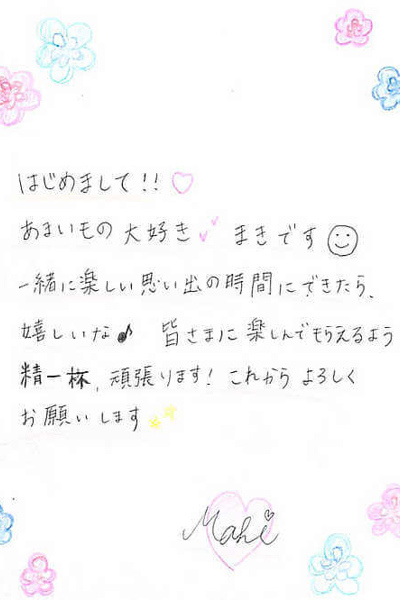 はじめまして!!♡
あまいもの大好き♡♡ まきです☺
一緒に楽しい思い出の時間にできたら、
嬉しいな♪ 皆さまに楽しんでもらえるよう
精一杯、頑張ります! これから よろしく
お願いします
Maki